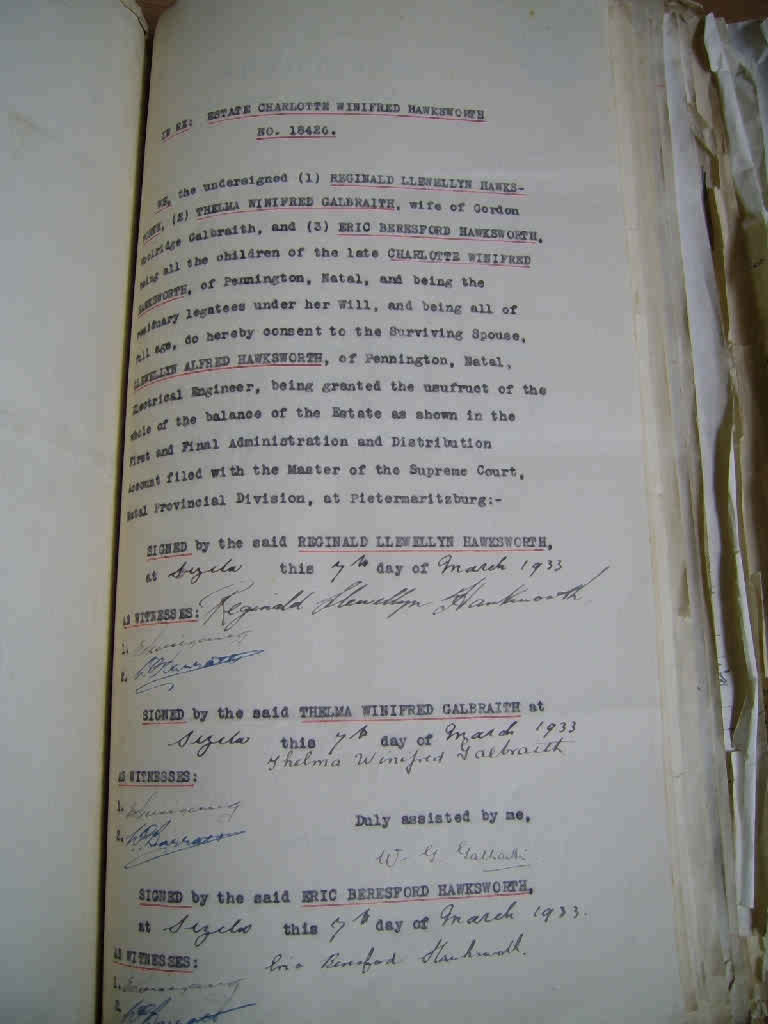 IN RE: ESTATE CHARLOTTE WINIFRED HAWKSWORTH
NO. 18426.
WE, the undersigned (1) REGINALD LLEWELLYN HAWKS-
WORTH, (2) THELMA WINIFRED GALBRAITH, wife of Gordon
Galbraith, and (3) ERIC BERESFORD HAWKSWORTH,
being all the children of the late CHARLOTTE WINIFRED
HAWKSWORTH, of Pennington, Natal, and being the
residuary legatees under her Will, and being all of
full age, do hereby consent to the Surviving Spouse,
LLEWELLYN ALFRED HAWKSWORTH, of Pennington, Natal,
Electrical Engineer, being granted the usufruct of the
whole of the balance of the Estate as shown in the
First and Final Administration and Distribution
Account filed with the Master of the Supreme Court,
Natal Provincial Division, at Pietermaritzburg:-
SIGNED by the said REGINALD LLEWELLYN HAWKSWORTH,
at Sezela this 7th day of March 1933
AS WITNESSES: Reginald Llewellyn Hawksworth
1.
2.
SIGNED by the said THELMA WINIFRED GALBRAITH at
Sezela this 7th day of March 1933
Thelma Winifred Galbraith
AS WITNESSES:
1.
2.
Duly assisted by me,
W. G. Galbraith
SIGNED by the said ERIC BERESFORD HAWKSWORTH,
at Sezela this 7th day of March 1933.
AS WITNESSES: Eric Beresford Hawksworth.
1.
2.